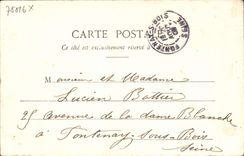 75016 X
CARTE POSTALE
Ce côté est exclusivement réservé à
FONTENAY-SOUS-BOIS
SEINE
Monsieur et Madame
Lucien Bottier
25 Avenue de la dame Blanche
à Fontenay-Sous-Bois
Seine